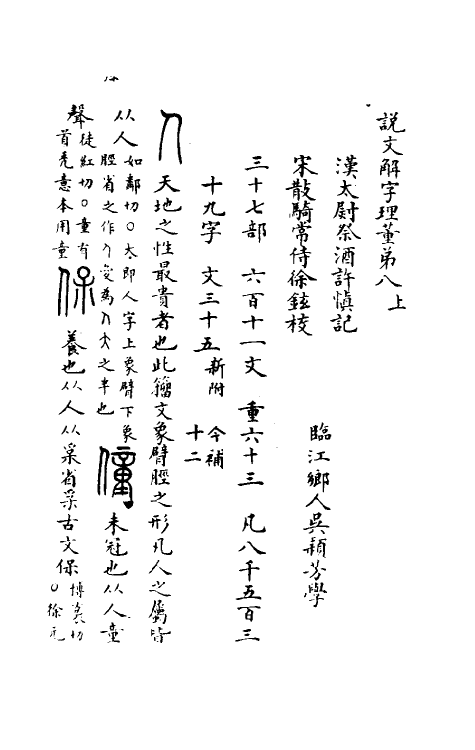 説文解字理董第八上
漢太尉祭酒許愼記
臨江鄉人吳頴芳學
宋散騎常侍徐鉉校
三十七部 六百十一文 重六十三 凡八千五百三
十九字 文三十五新附 今補十二
人 天地之性最貴者也此籀文象臂脛之形凡人之屬皆
从人 如鄰切〇大即人字上象臂下象脛省之作人变為大之半也 僮 未冠也从人童
聲 徒紅切〇童有首禿意本用童 保 養也从人从𤓽省𤓽古文保 博袌切〇徐元